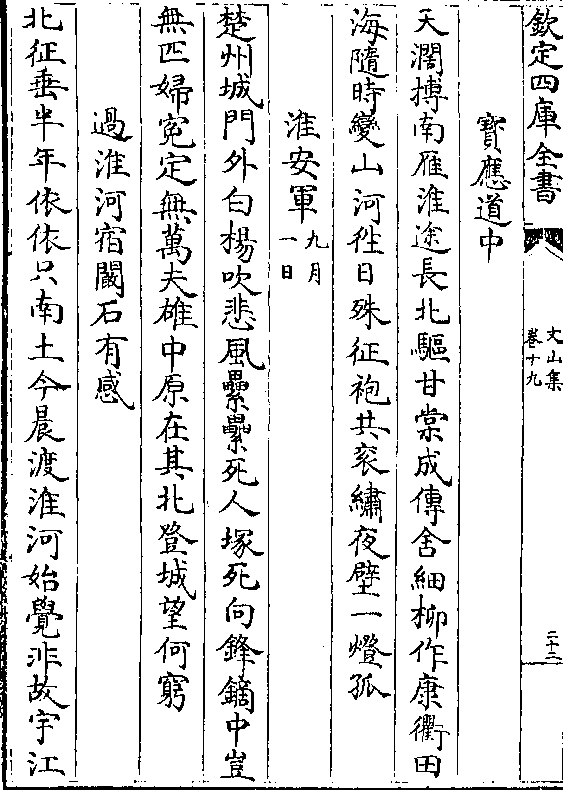 欽定四庫全書
文山集
卷十九
二十二
寳應道中
天濶摶南雁淮途長北驅甘棠成傳舍細柳作康衢田
海隨時變山河徃日殊征袍共衮繡夜壁一燈孤
淮安軍九月一日
楚州城門外白楊吹悲風纍纍死人塚死向鋒鏑中豈
無匹婦寃定無萬夫雄中原在其北登城望何窮
過淮河宿闞石有感
北征垂半年依依只南土今晨渡淮河始覺非故宇江